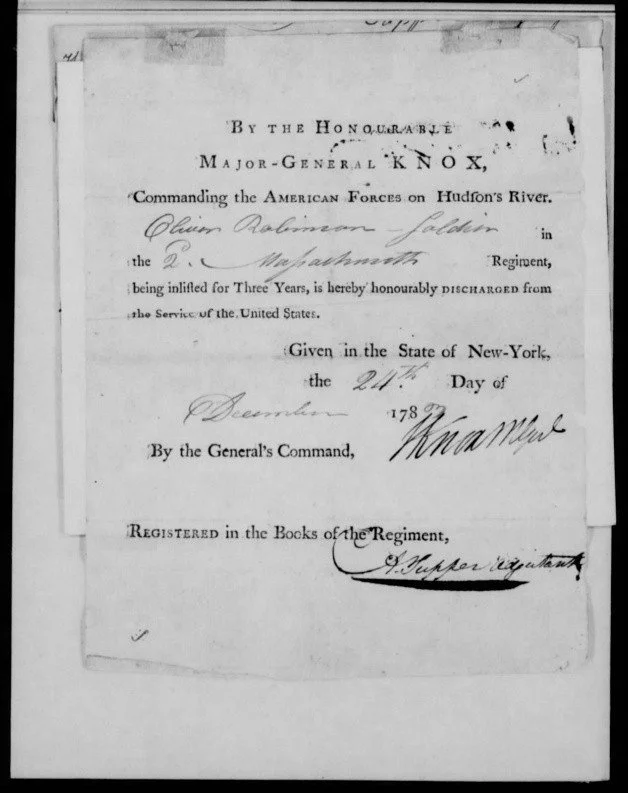 BY THE HONOURABLE
MAJOR-GENERAL KNOX,
Commanding the AMERICAN FORCES on Hudſon's River.
Oliver Robinson Soldier in
the 2. Massachusetts Regiment,
being inliſted for Three Years, is hereby honourably DISCHARGED from
the Service of the United States.
Given in the State of New-York,
the 24th. Day of
December 1783
By the General's Command, HKnox MGenl
REGISTERED in the Books of the Regiment,
A. Tupper Adjutant